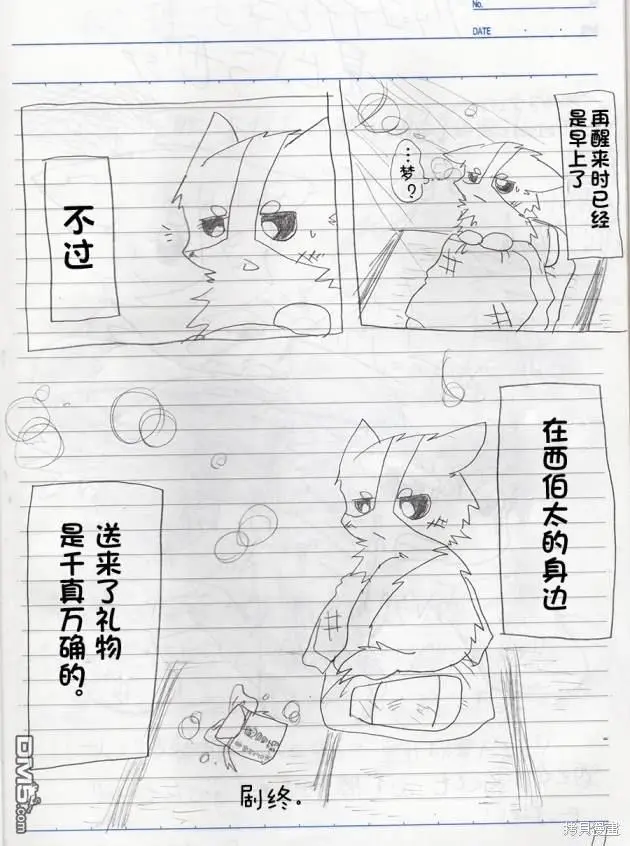 No.
DATE
再醒来时已经
是早上了
…梦？
不过
在西伯太的身边
送来了礼物
是千真万确的。
剧终。
DM5
.com
拷貝漫畫